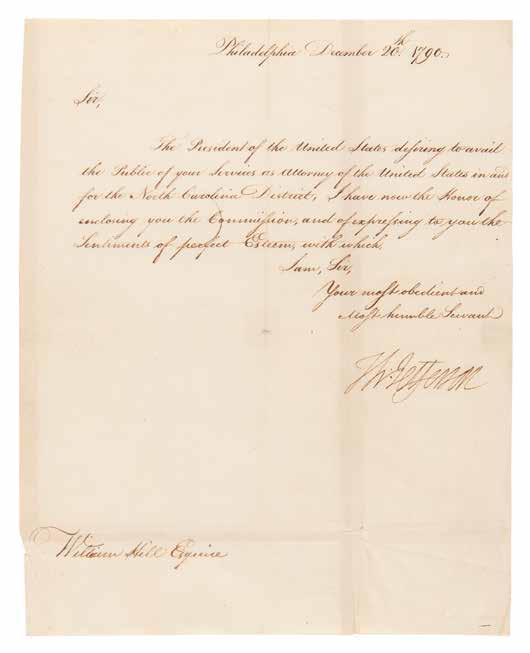 Philadelphia December 20.th 1790.
Sir,
The President of the United States desiring to avail
the Public of your Services as Attorney of the United States in and
for the North Carolina District, I have now the Honor of
enclosing you the Commission, and of expressing to you the
Sentiments of perfect Esteem, with which,
I am, Sir,
Your most obedient and
Most humble Servant
Th: Jefferson
William Hill Esquire